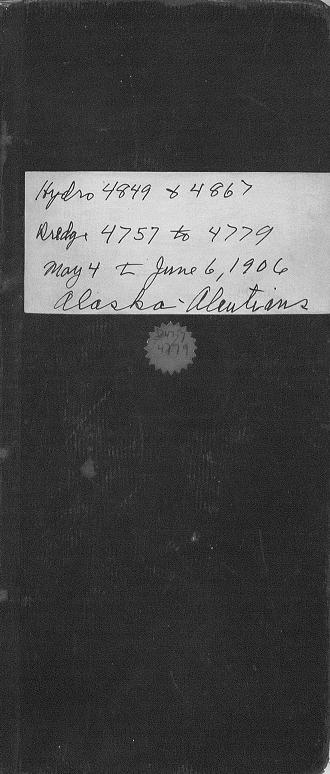 Hydro 4849 & 4867
Dredge 4757 to 4779
May 4 to June 6, 1906
Alaska-Aleutians
4779